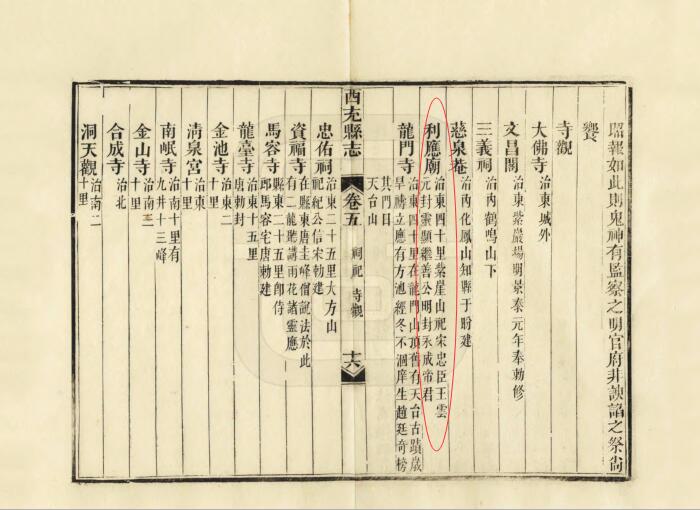 昭報如此則鬼神有監察之明官府非諛諂之祭尙
饗
寺觀
大佛寺 治東城外
文昌閣 治東紫巖場明景泰元年奉勅修
三義祠 治內鶴鳴山下
慈泉菴 治內化鳳山知縣于盼建
利應廟 治東四十里紫崖山祀宋忠臣王雲
元封靈顯繼善公明封永成帝君
龍門寺 治東四十里在龍門山頂舊有天台古蹟歲
旱禱立應有方池經冬不涸庠生趙廷奇榜
其門曰
天台山
西充縣志
卷五
祠祀 寺觀
十六
忠佑祠 治東二十五里大方山
祀紀公信宋勅建
資福寺 在縣東唐圭峰僧說法於此
有二龍聽講雨花諸靈應
馬容寺 縣東二十五里卽侍
郎馬容宅唐勅建
龍臺寺 治東十五里
唐勅封
金池寺 治東二
十里
淸泉宮 治東
十里
南岷寺 治南十里有
九井十三峰
金山寺 治南二
十里
合成寺 治北
洞天觀 治南二
十里